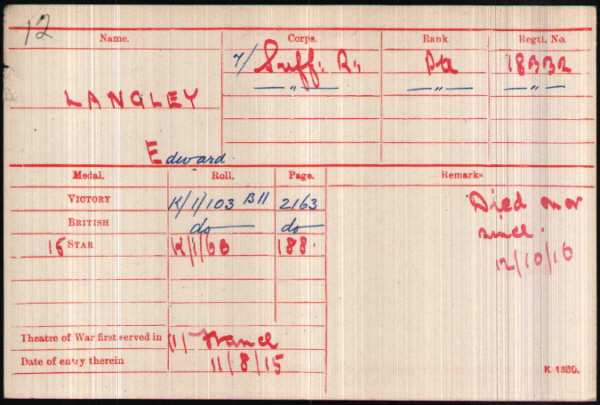 12
Name. Corps. Rank. Regtl. No.
LANGLEY 7/ Suff: R. Pte 18332
Edward. —"— —"— —"—
Medal. Roll. Page. Remarks
VICTORY K/1/103 B11 2163 Died on or
BRITISH do do since.
15 STAR K/1/6B 188. 12/10/16
Theatre of War first served in (1) France
Date of entry therein 11/8/15
K 1380.